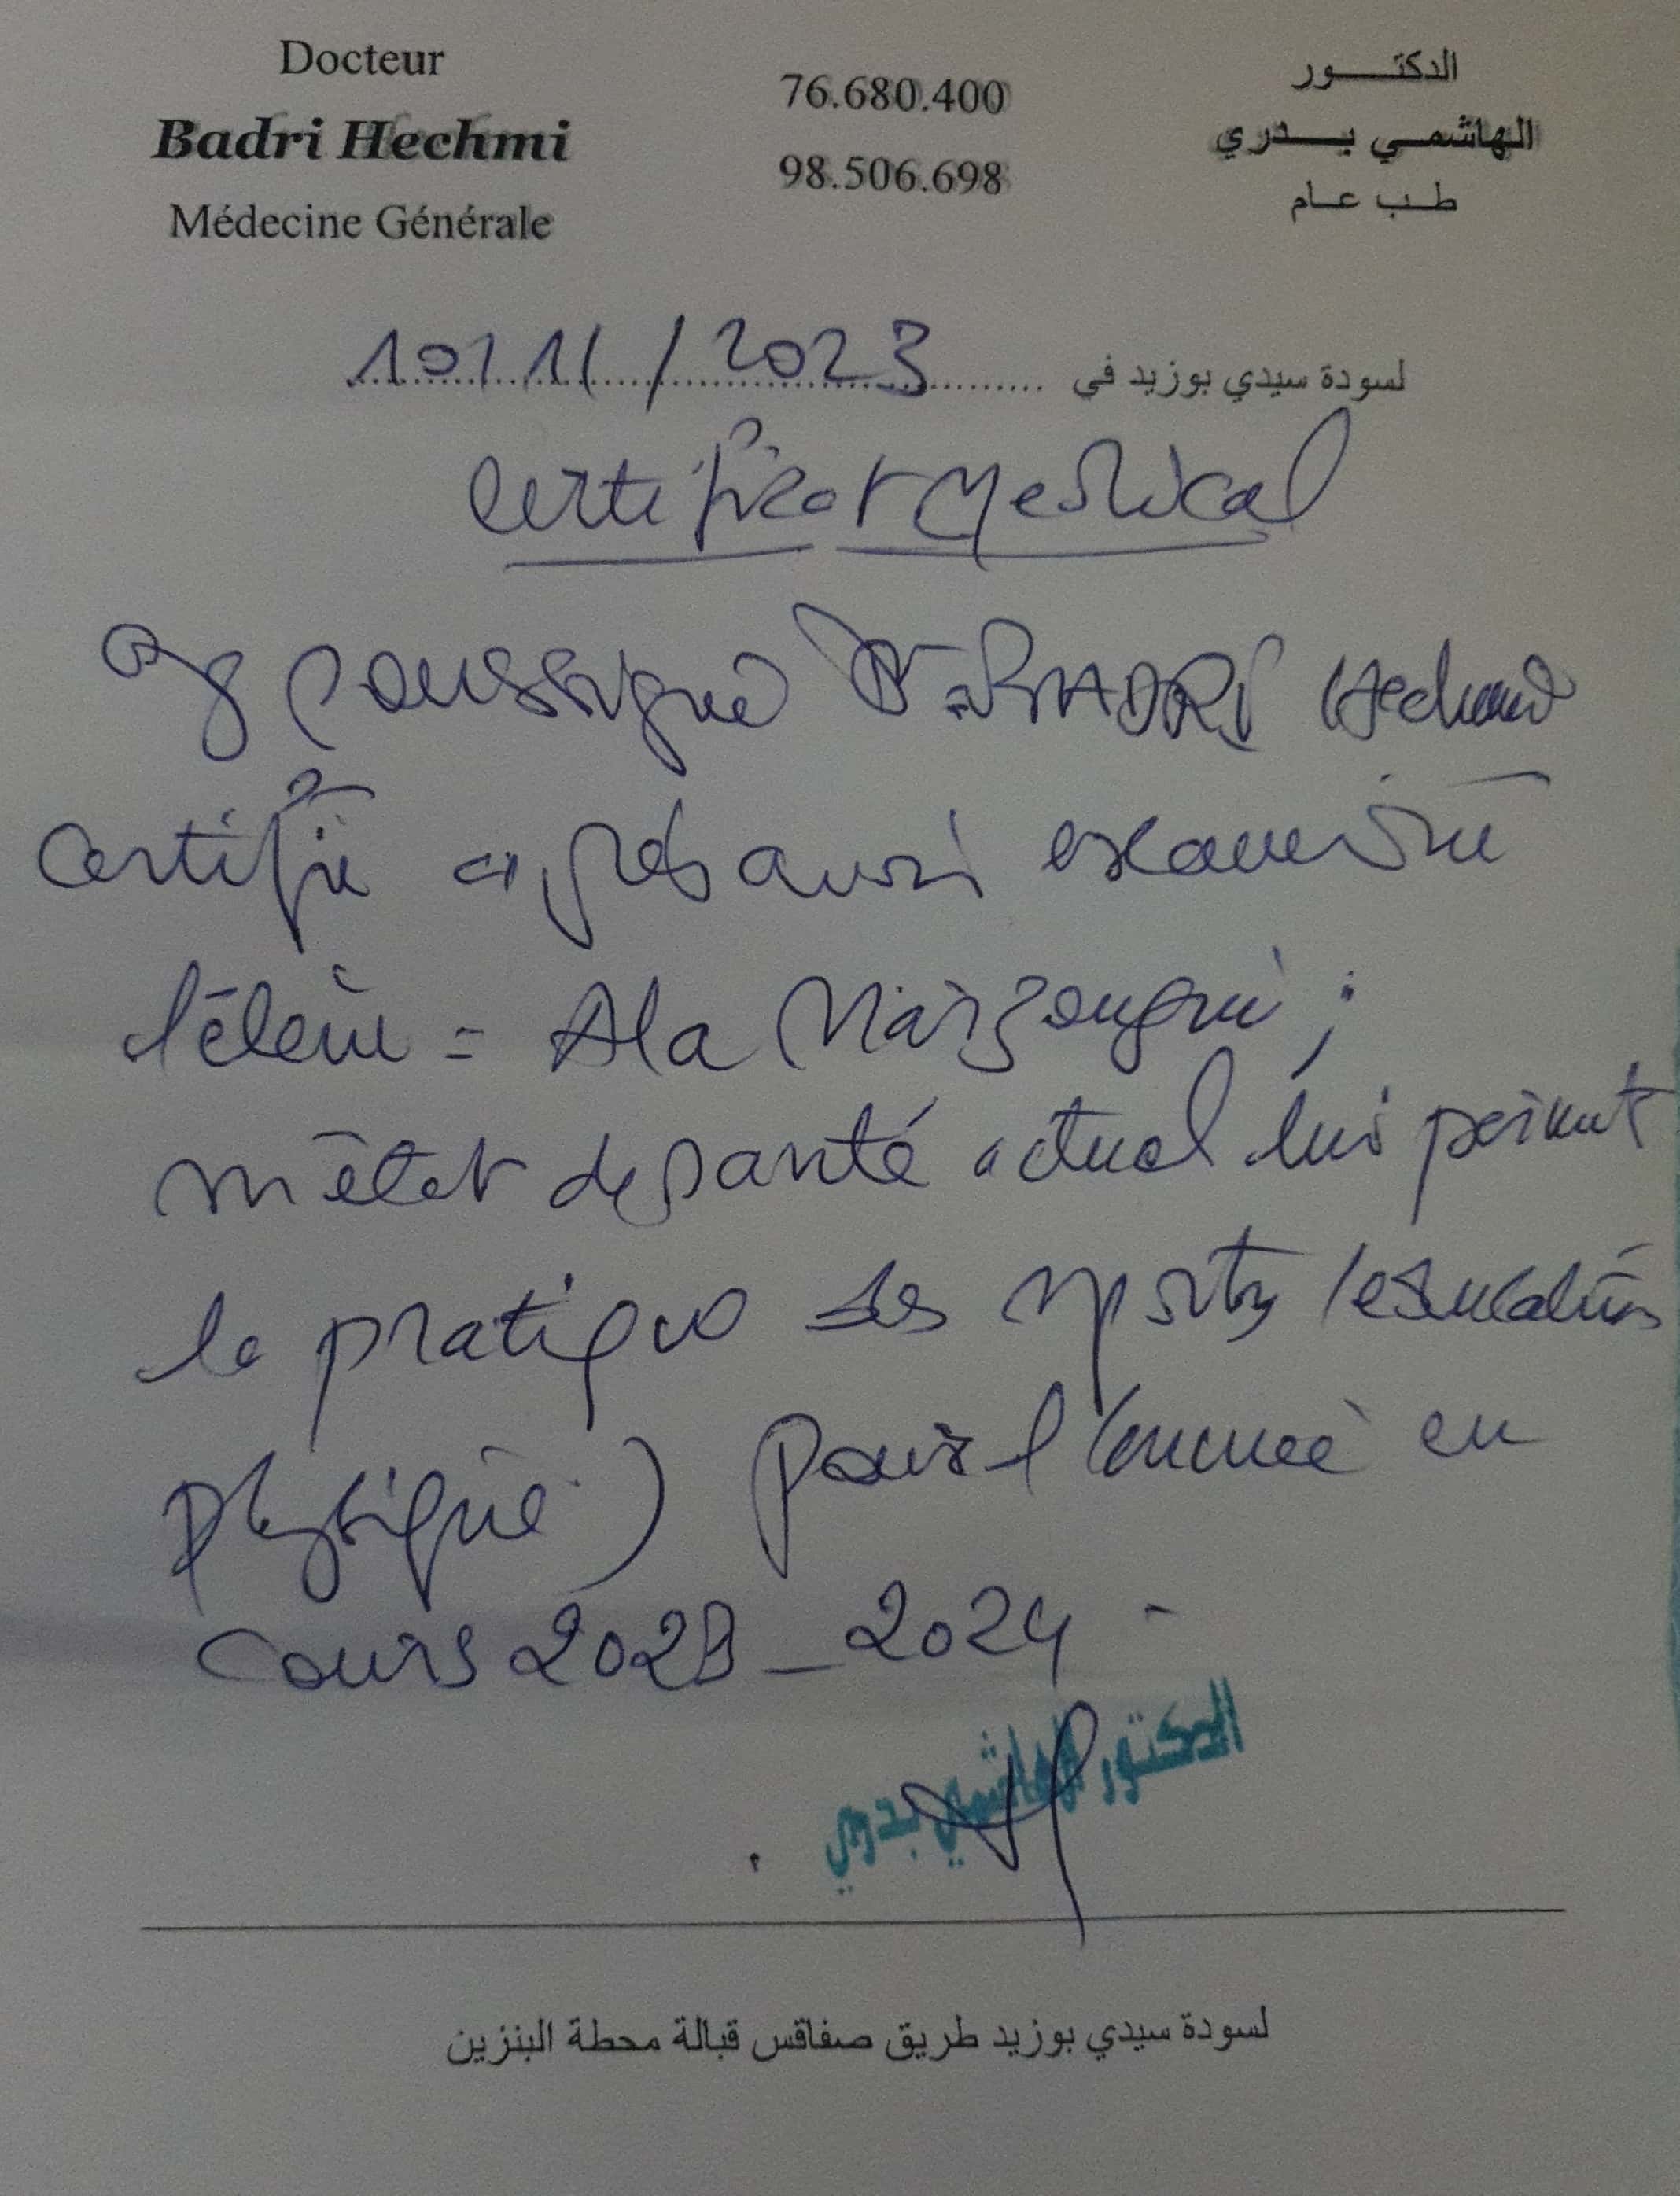 Docteur
Badri Hechmi
Médecine Générale
76.680.400
98.506.698
الدكتور
الهاشمي بدري
طب عام
لسودة سيدي بوزيد في 10/11/2023
Certificat Medical
Je soussigné Dr BADRI Hechmi
certifie après avoir examiné
l'élève = Ala Marzougui ;
son état de santé actuel lui permet
la pratique des sports (education
physique) pour l'année en
cours 2023_2024 -
الدكتور الهاشمي بدري
لسودة سيدي بوزيد طريق صفاقس قبالة محطة البنزين